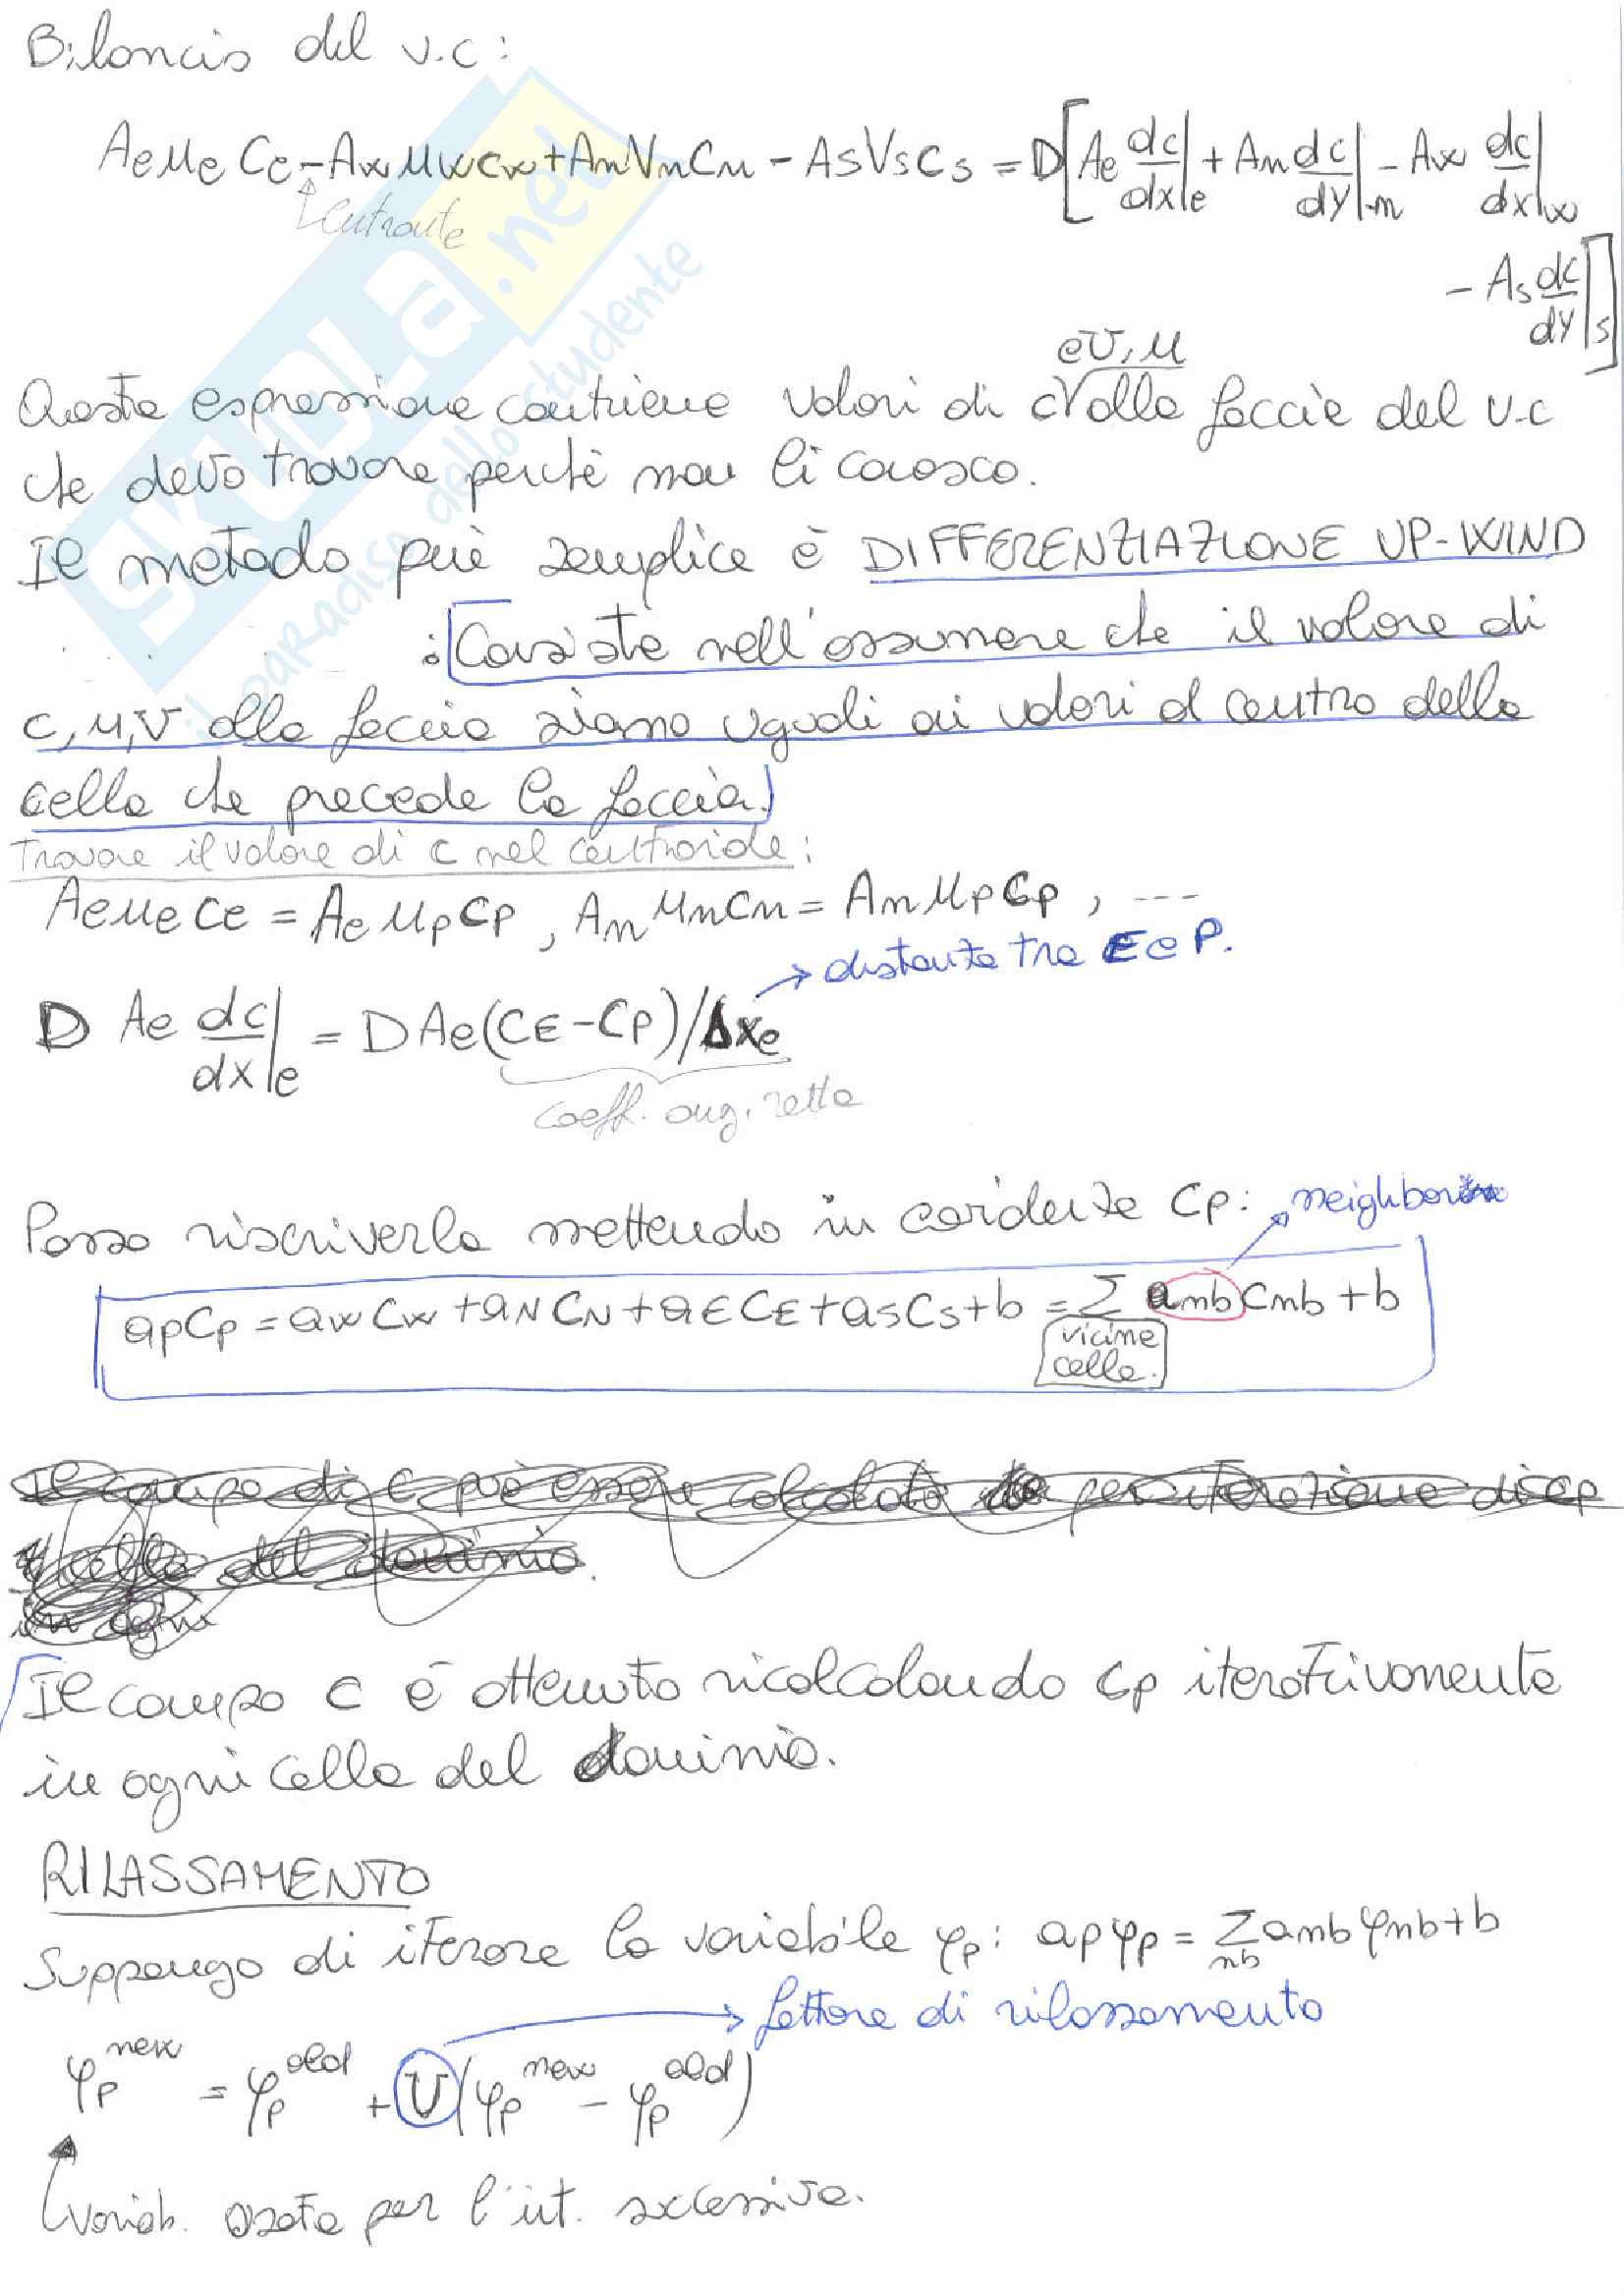 Bilancio del v.c :
Ae ue Ce - Aw uw cw + An Vn Cn - As Vs Cs = D[Ae dc/dx|e + An dc/dy|n - Aw dc/dx|w
entrante
- As dc/dy|s]
e v, u
Questa espressione contiene valori di c alle faccie del v.c
che devo trovare perchè non li conosco.
Il metodo più semplice è DIFFERENZIAZIONE UP-WIND
: Consiste nell'assumere che il valore di
c, u, v alla faccia siano uguali ai valori al centro della
cella che precede la faccia.
Trovare il valore di c nel centroide:
Ae ue Ce = Ae up Cp , An un Cn = An up Cp , ---
→ distanza tra E e P.
D Ae dc/dx|e = D Ae (CE - CP)/Δxe
coeff. ang. retta
Posso riscriverla mettendo in evidenza Cp: neighbor
ap Cp = aw Cw + aN CN + aE CE + as Cs + b = Σ anb Cnb + b
vicine
cella.
Il campo di C può essere calcolato per iterazione di cp
cella del dominio.
in ogni
Il campo C è ottenuto ricalcolando Cp iterativamente
in ogni cella del dominio.
RILASSAMENTO
Suppongo di iterare la variabile φp: ap φp = Σnb anb φnb + b
→ fattore di rilassamento
φp^new = φp^old + U(φp^new - φp^old)
variab. usata per l'it. successiva.
SKUOLA.net
il paradiso dello studente